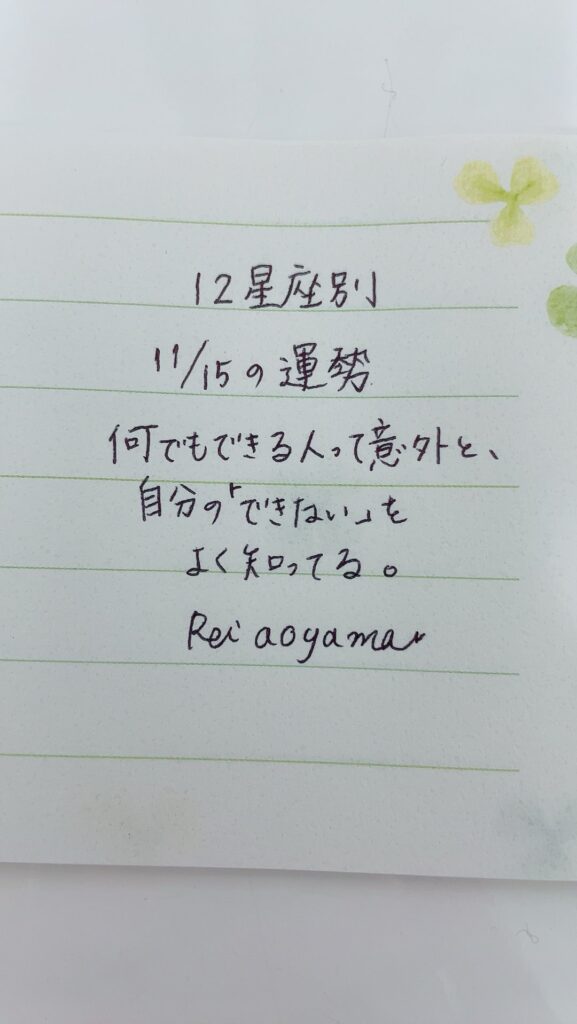 12星座別
11/15の運勢
何でもできる人って意外と、
自分の「できない」を
よく知ってる。
Rei aoyama